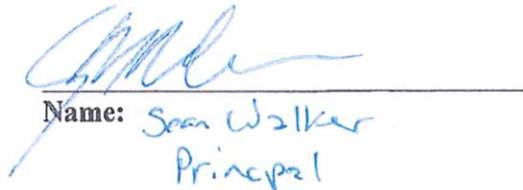 Name: Sean Walker
Principal